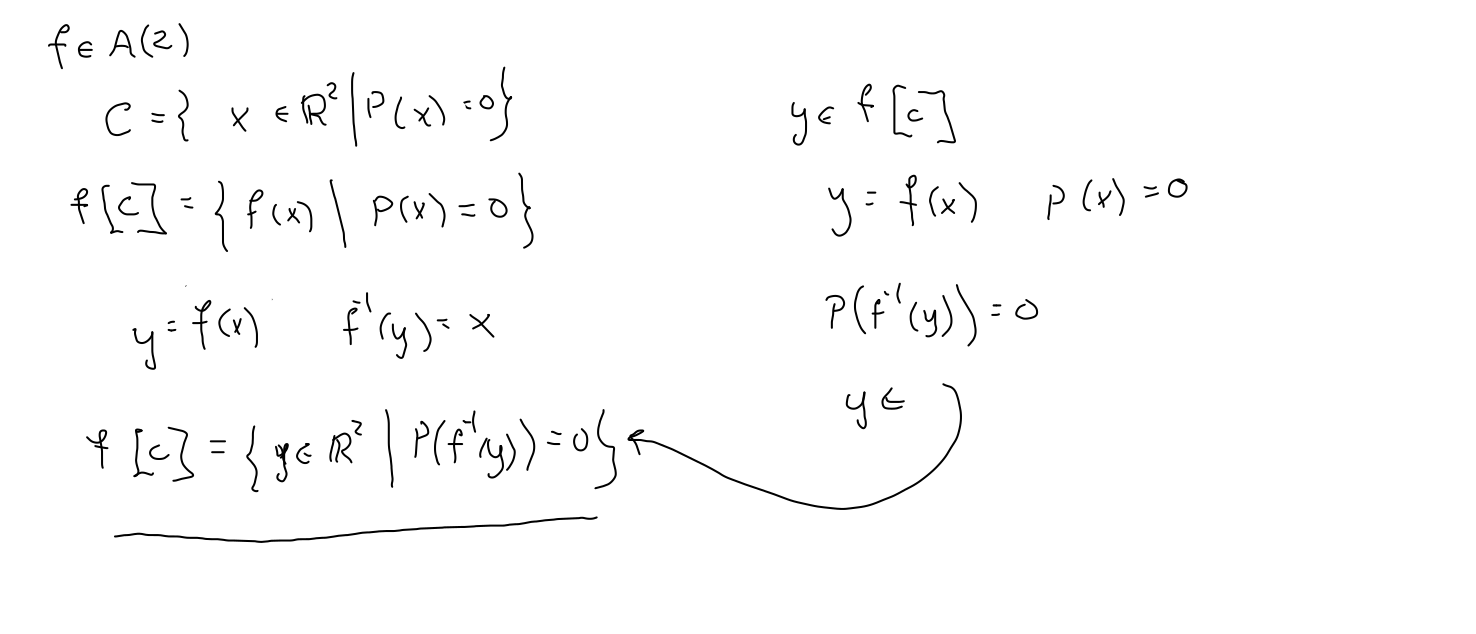 f ∈ A(2)
C = { x ∈ ℝ² | P(x) = 0}
f[C] = { f(x) | P(x) = 0}
y = f(x) f⁻¹(y) = x
f[C] = { y ∈ ℝ² | P(f⁻¹(y)) = 0}
y ∈ f[C]
y = f(x) P(x) = 0
P(f⁻¹(y)) = 0
y ∈